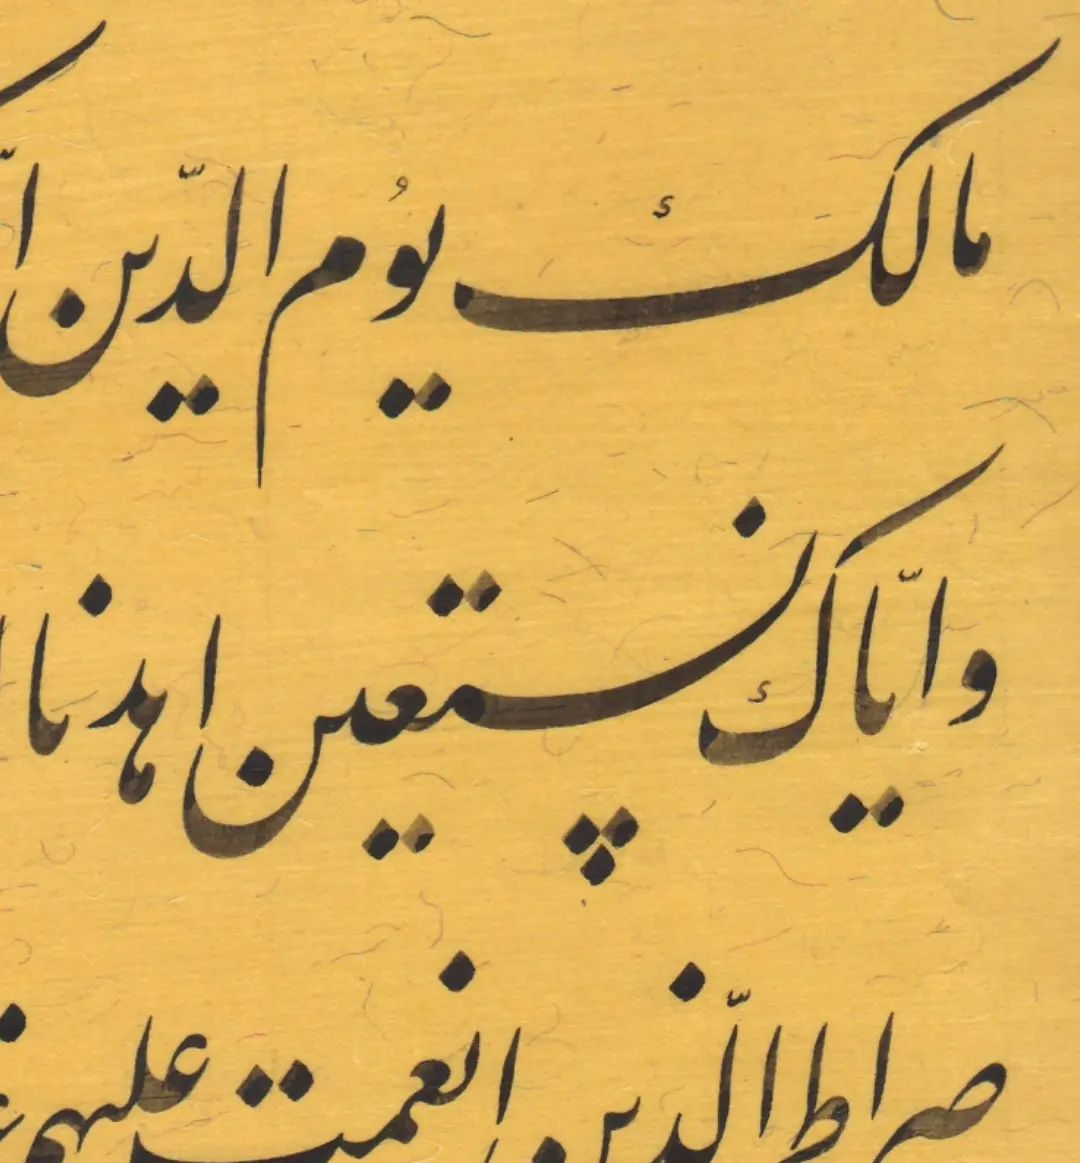 مالک یوم الدّین
وایّاک نستعین اهدنا
صراط الّذین انعمت علیهم